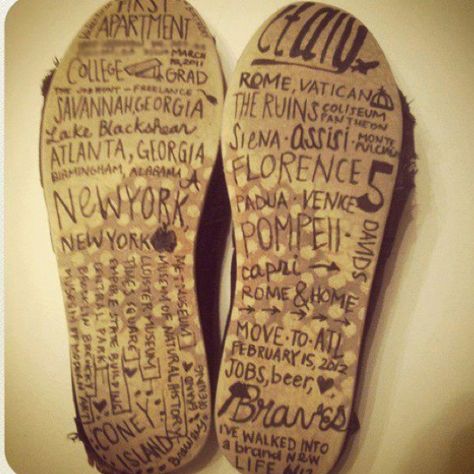 FIRST
APARTMENT
MARCH
19, 2011
COLLEGE GRAD
FREELANCE
SAVANNAH GEORGIA
Lake Blackshear
ATLANTA, GEORGIA
BIRMINGHAM, ALABAMA
NEWYORK,
NEWYORK
MET MUSEUM
MUSEUM OF NATURAL HISTORY
CLOISTER MUSEUM
TIMES SQUARE
EMPIRE STATE BUILDING
CENTRAL PARK
CONEY
ISLAND
Italy.
ROME, VATICAN
THE RUINS COLISEUM
PANTHEON
Siena · ASSISI · MONTE
PULCIANO
FLORENCE
5
DAVIDS
PADUA · VENICE
POMPEII ·
capri →
ROME & HOME
MOVE · TO · ATL
FEBRUARY 15, 2012
JOBS, beer,
Braves
I'VE WALKED INTO
a brand NEW
LIFE